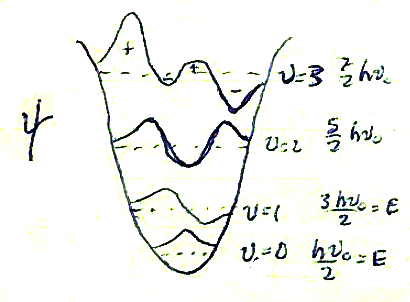 + - + -
υ=3 7/2 hν₀
ψ
υ=2 5/2 hν₀
υ=1 3hν₀/2 = E
υ=0 hν₀/2 = E